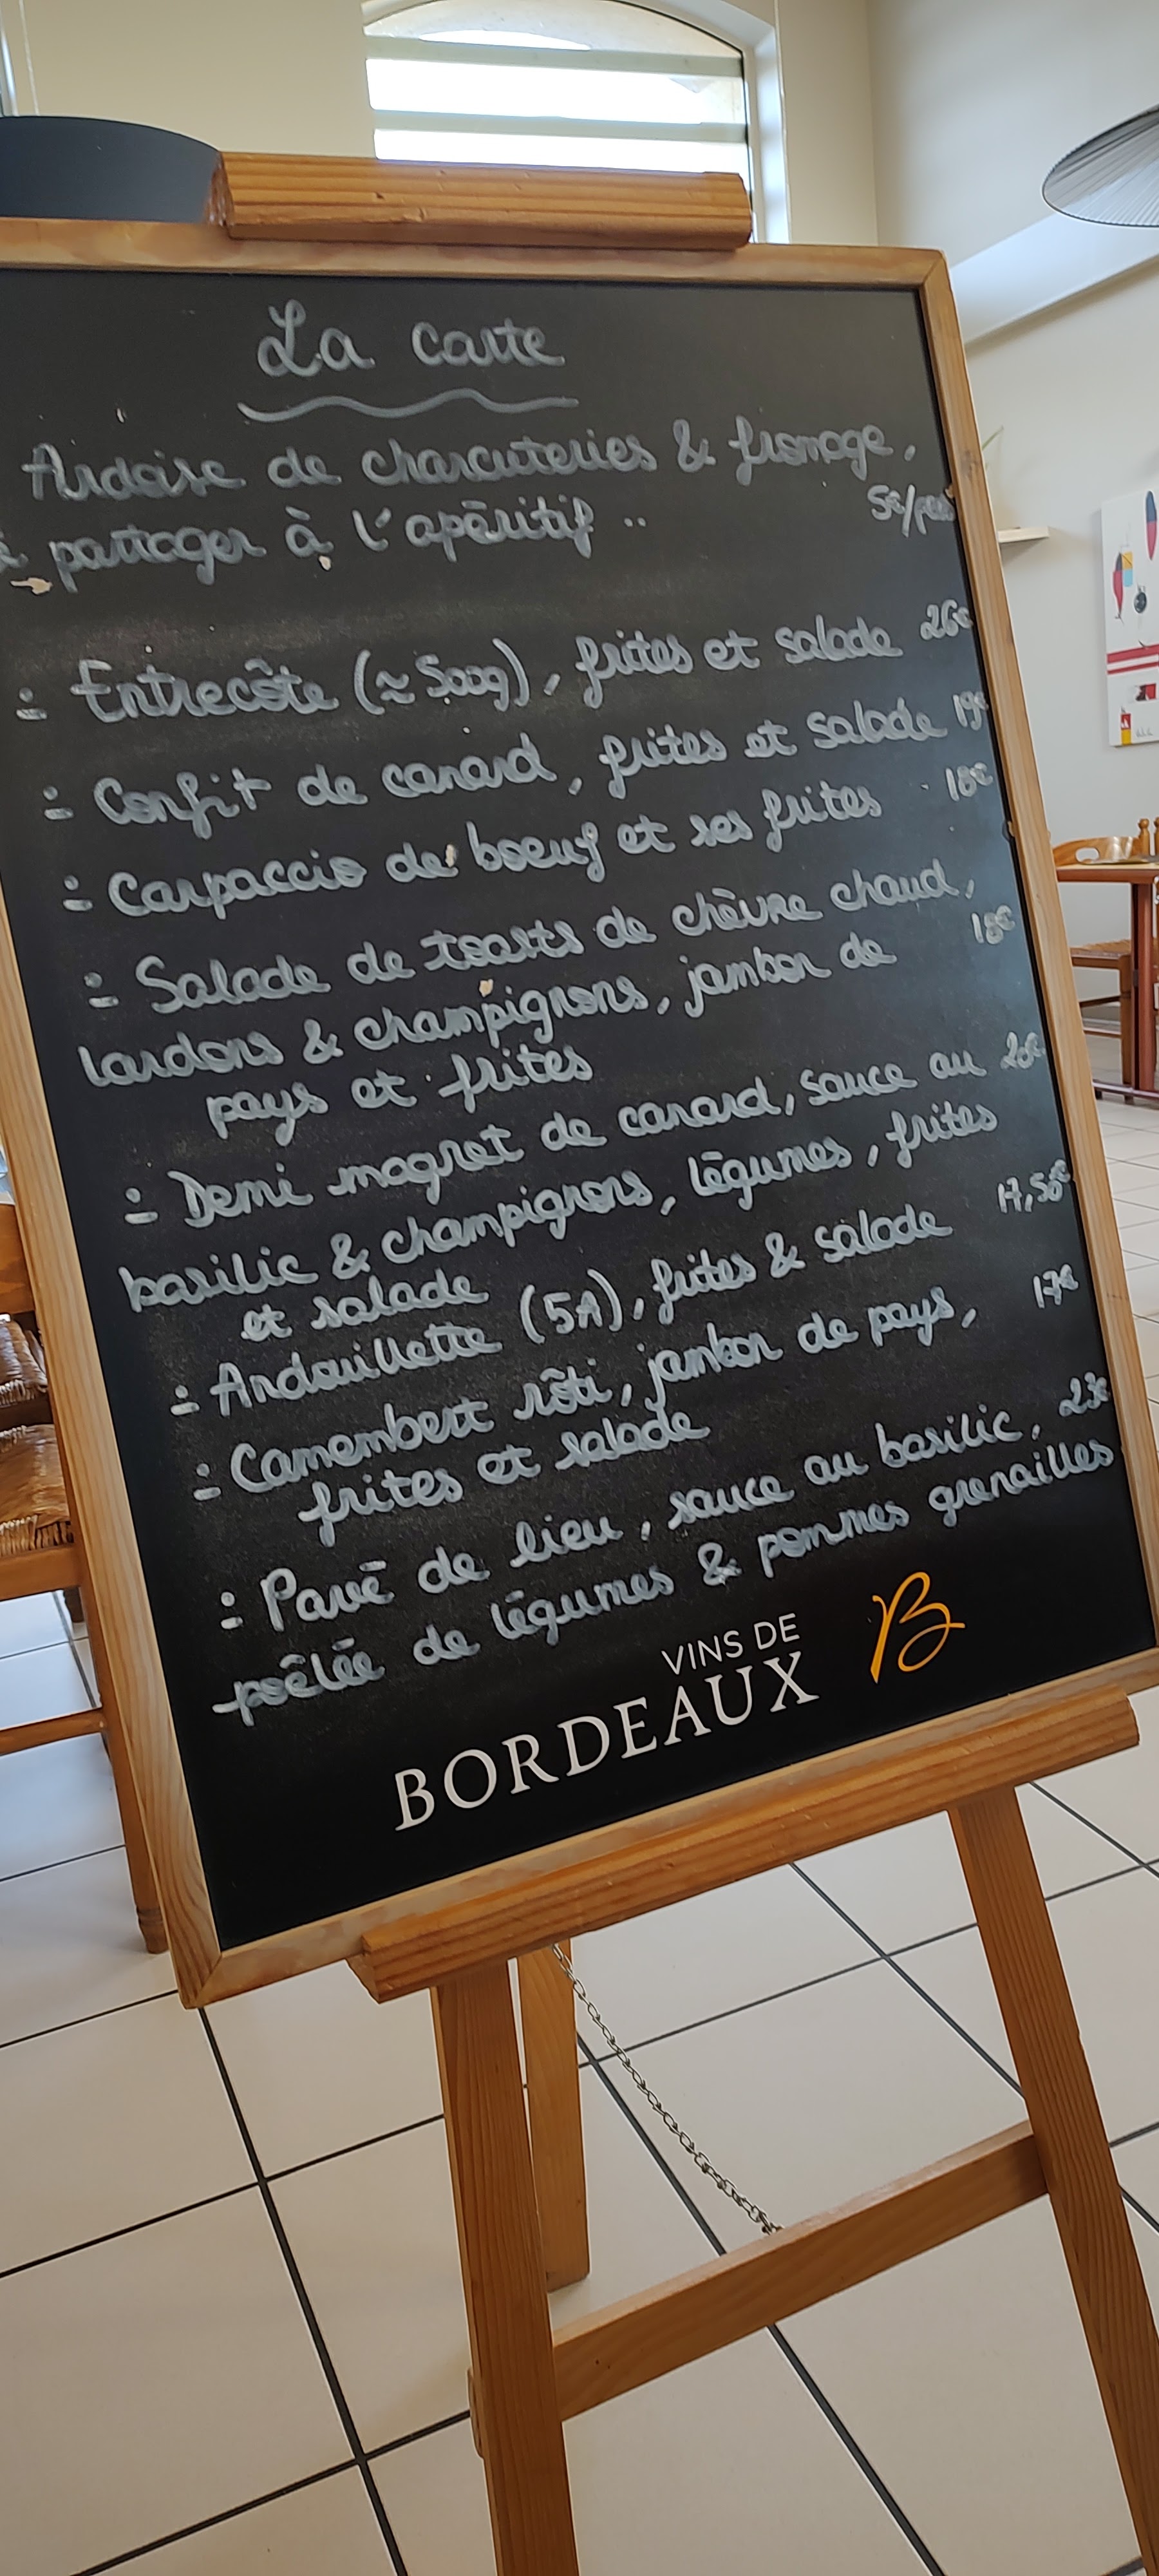 La carte
Ardoise de charcuteries & fromage,
à partager à l'apéritif .. 5€/pers
- Entrecôte (≈500g), frites et salade 26€
- Confit de canard, frites et salade 19€
- Carpaccio de boeuf et ses frites 18€
- Salade de toasts de chèvre chaud,
lardons & champignons, jambon de 18€
pays et frites
- Demi magret de canard, sauce au 20€
basilic & champignons, légumes, frites
et salade
- Andouillette (5A), frites & salade 17,50€
- Camembert rôti, jambon de pays, 17€
frites et salade
- Pavé de lieu, sauce au basilic, 23€
poêlée de légumes & pommes grenailles
VINS DE
BORDEAUX B